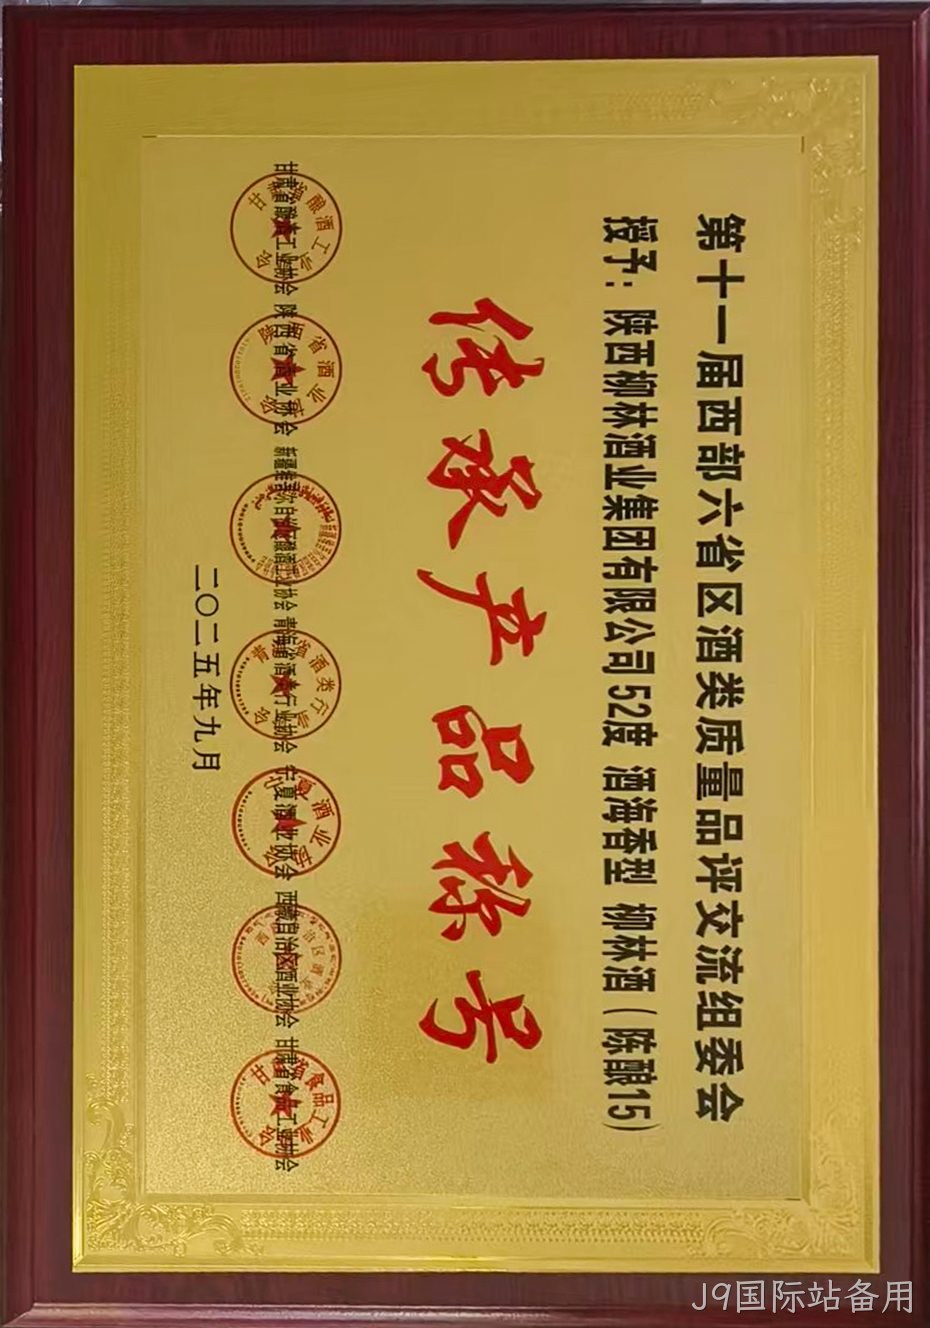 第十一届西部六省区酒类质量品评交流组委会
授予：陕西柳林酒业集团有限公司52度 酒海香型 柳林酒（陈酿15）
传承产品称号
甘肃省酿酒工业协会 陕西省酒业协会 新疆维吾尔自治区酿酒工业协会 青海省酒类行业协会 宁夏酒业协会 西藏自治区酒业协会 甘肃省食品工业协会
二〇二五年九月
J9国际站备用